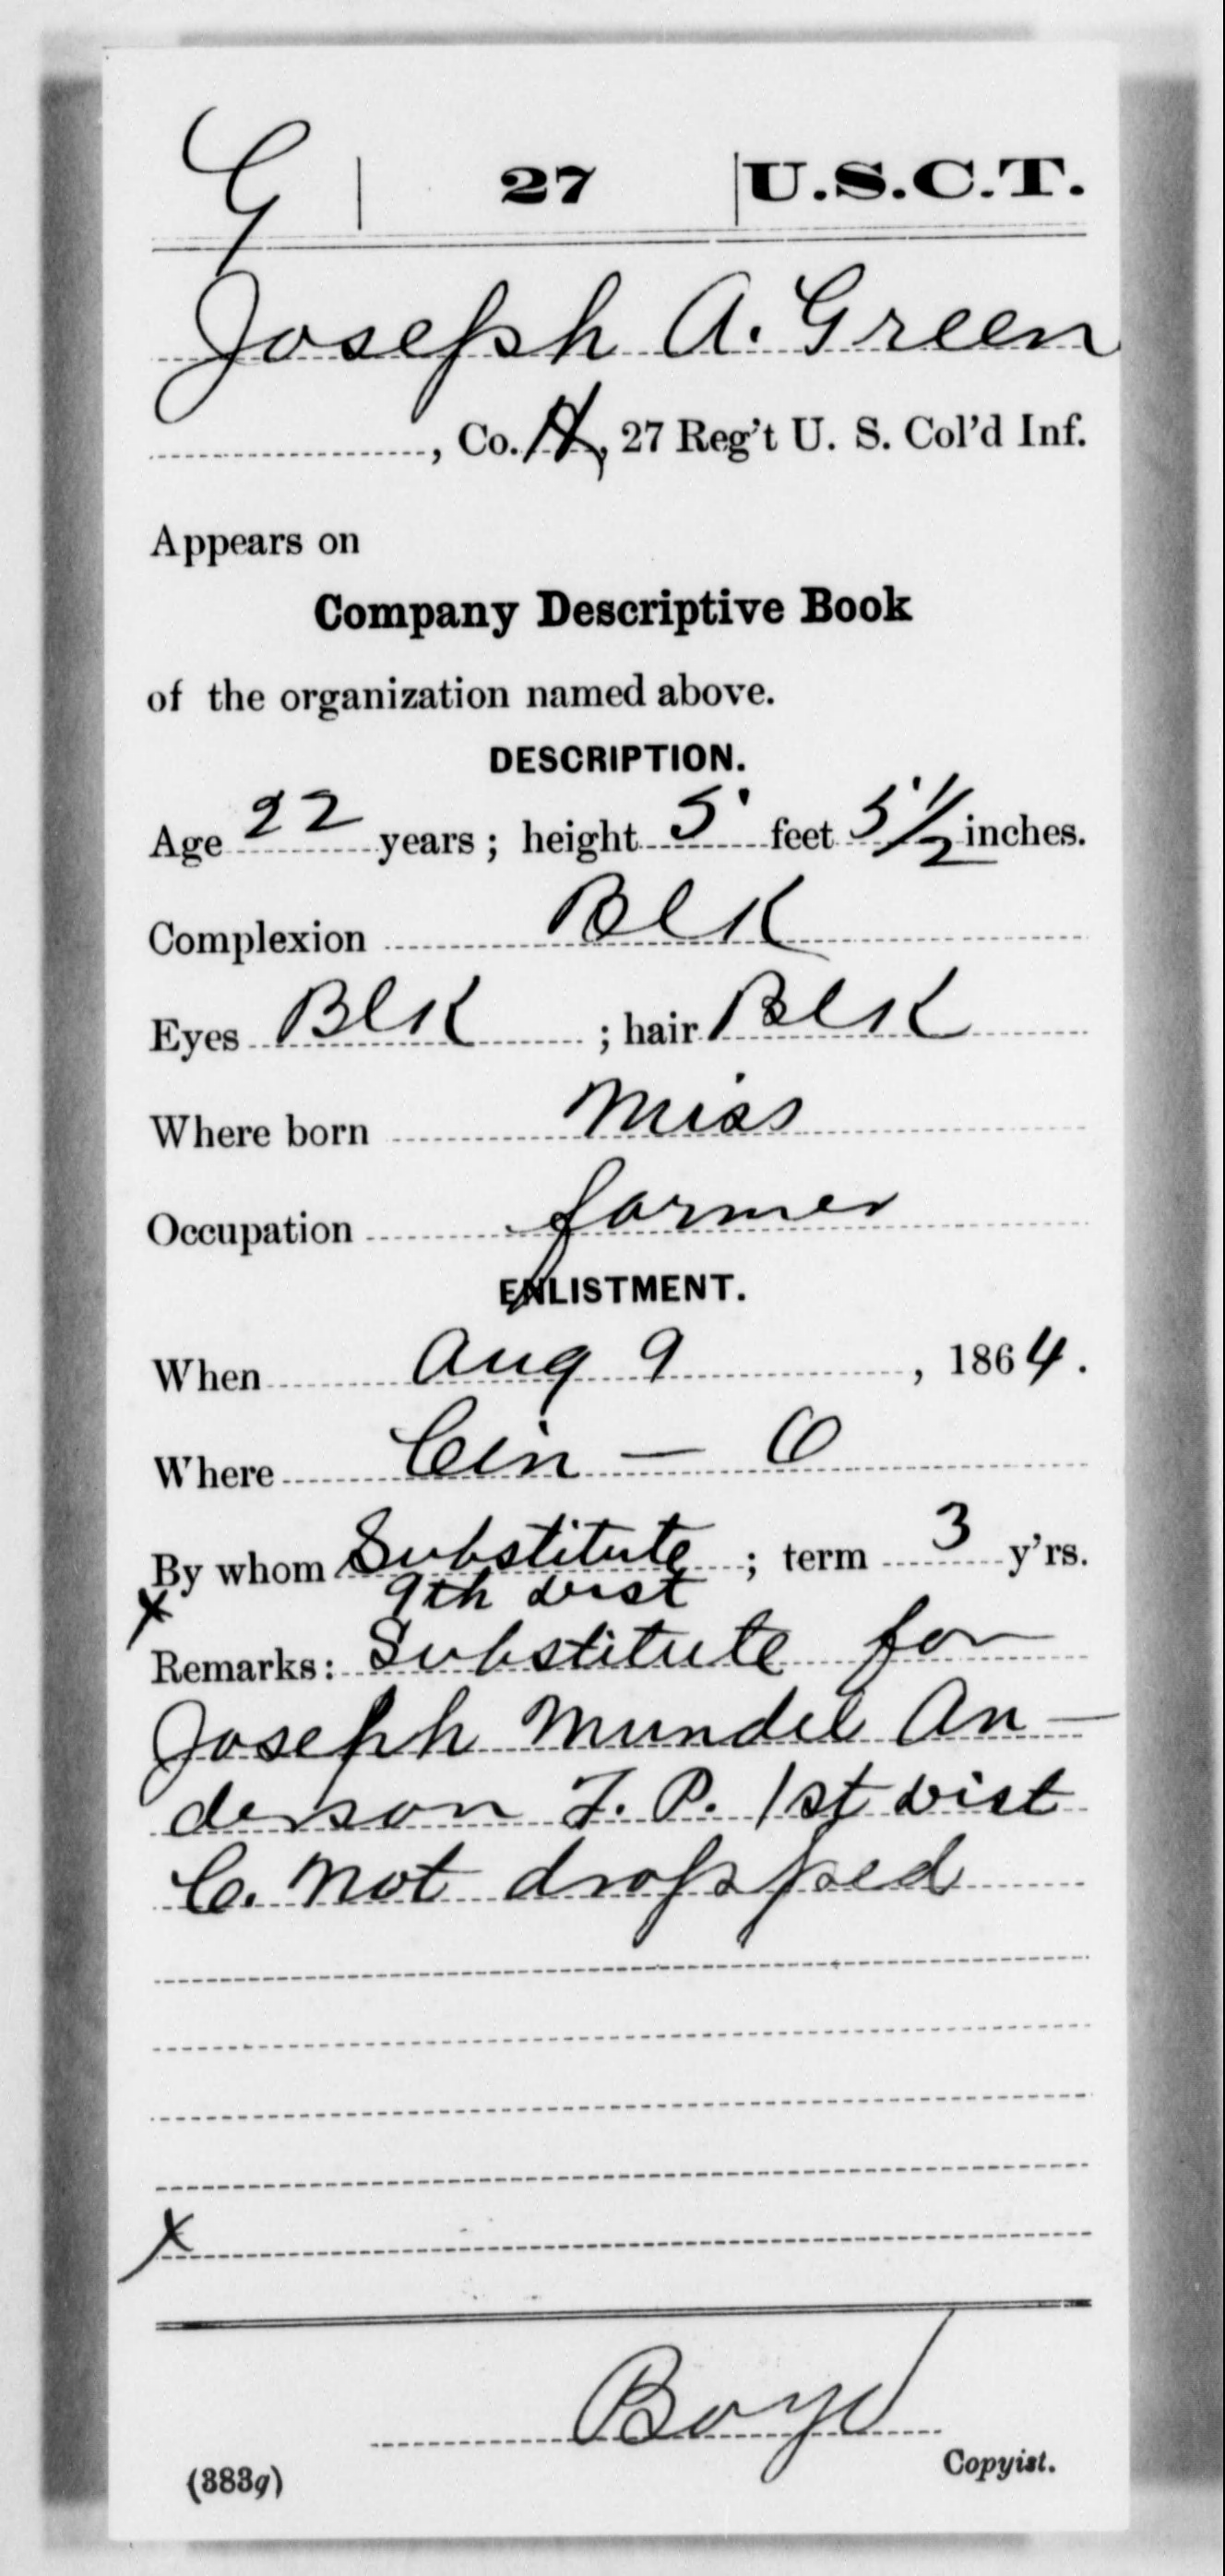 G | 27 | U.S.C.T.
Joseph A. Green
, Co. H, 27 Reg't U. S. Col'd Inf.
Appears on
Company Descriptive Book
of the organization named above.
DESCRIPTION.
Age 22 years; height 5 feet 5 1/2 inches.
Complexion Blk
Eyes Blk ; hair Blk
Where born Miss
Occupation farmer
ENLISTMENT.
When Aug 9, 1864.
Where Cin — O
By whom Substitute ; term 3 y'rs.
9th Dist
x
Remarks: Substitute for
Joseph Mundel An-
derson T. P. 1st Dist
C. Not dropped
x
Boyd
Copyist.
(383g)